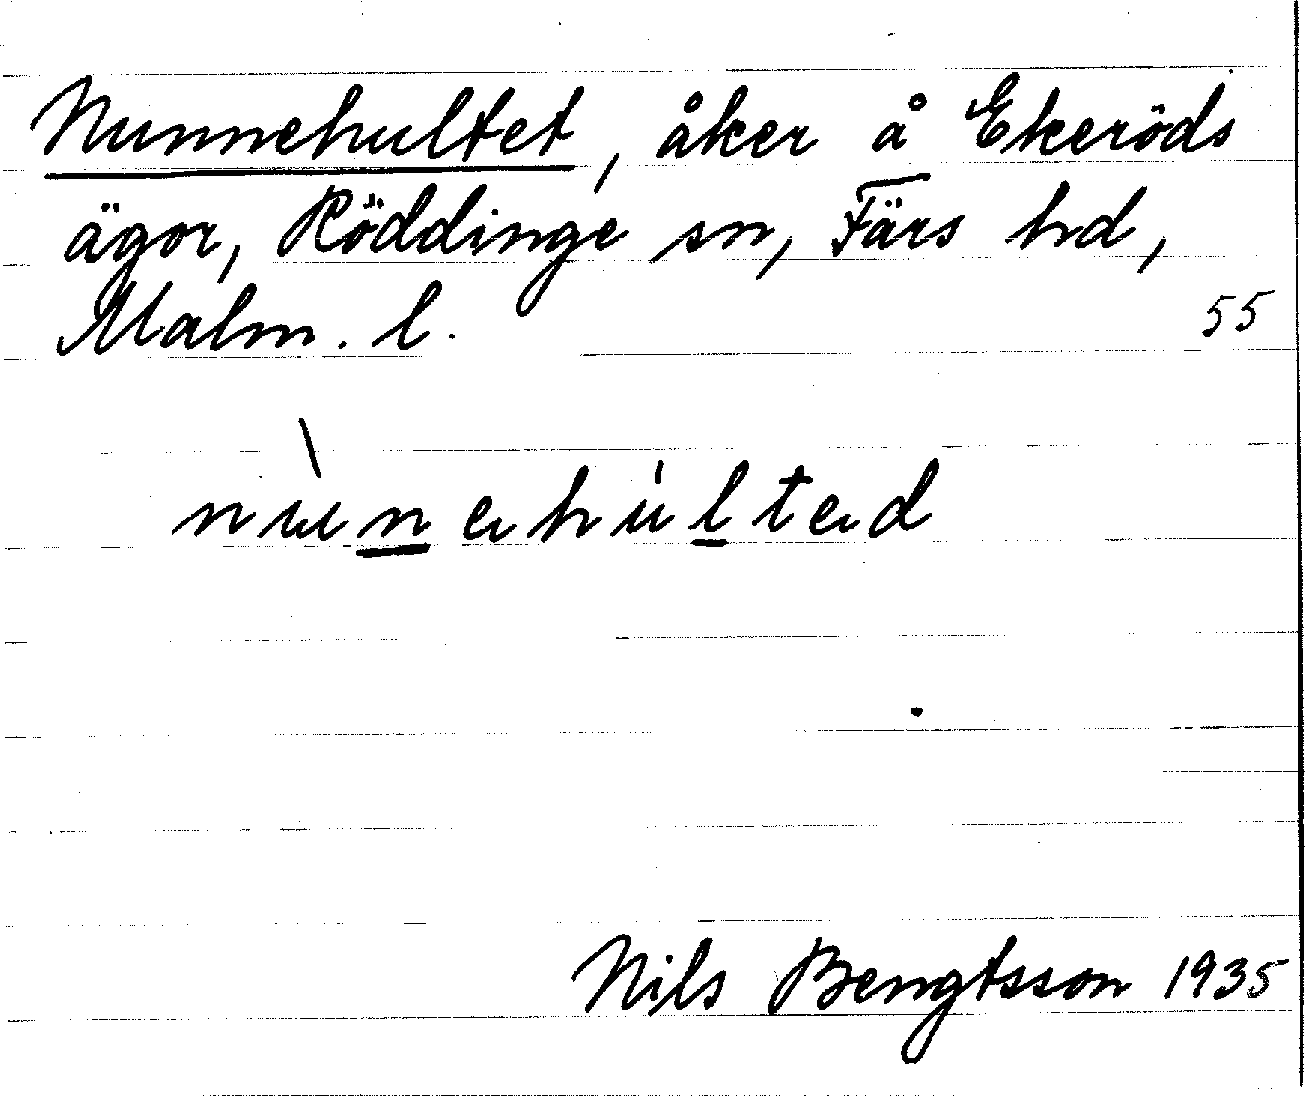 Nunnehultet, åker å Ekeröds
ägor, Röddinge sn, Färs hd,
Malm. l.
55
nùnehúlted
Nils Bengtsson 1935